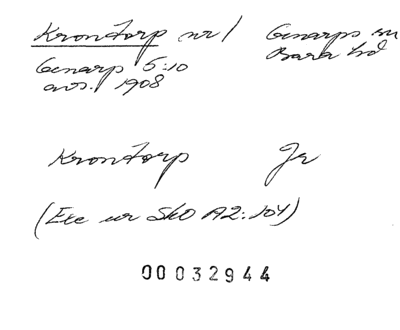 Krontorp nr 1 Genarps sn
Genarp 5:10 Bara hd
avs. 1908
Krontorp Jr
(Exc ur SkO A2:104)
00032944